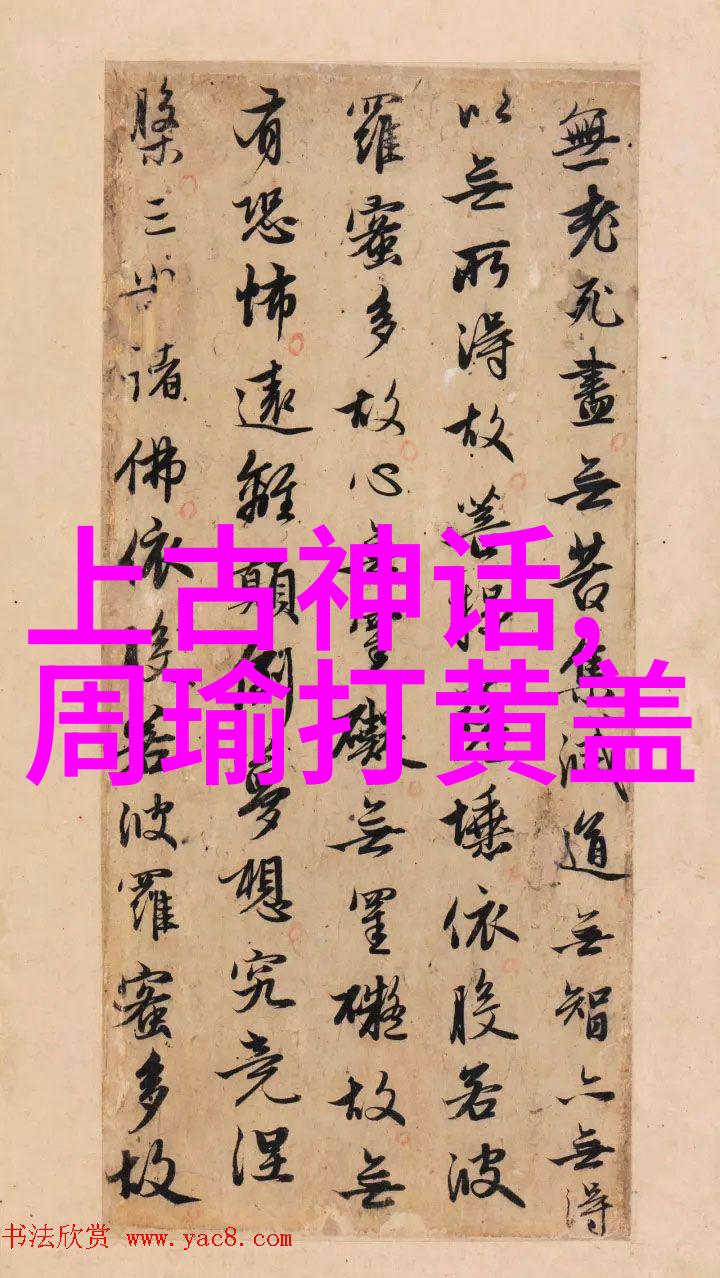 無老死盡无苦集滅道无智亦无得
以无所得故菩提薩埵依般若波
羅蜜多故心无罣礙无罣礙故无
有恐怖遠離顛倒夢想究竟涅
槃三世諸佛依般若波羅蜜多故
上古神话,
周瑜打黄盖
书法欣赏 www.yac8.com